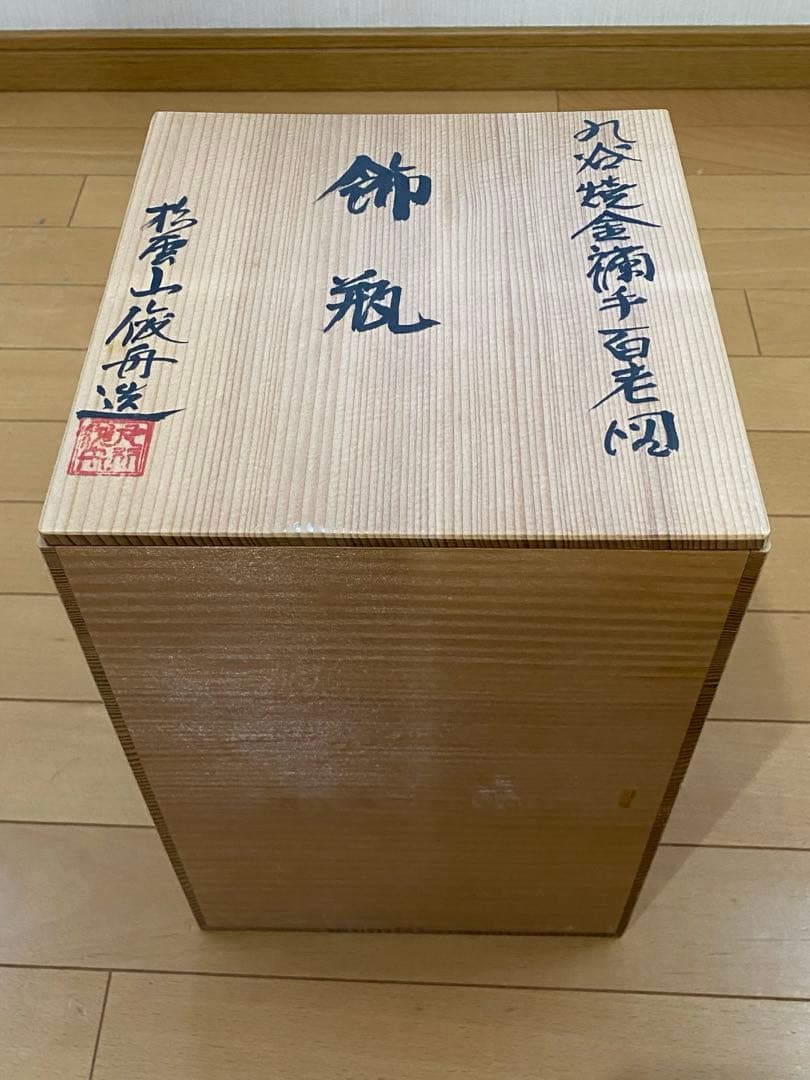 九谷焼金襴手百老図
飾瓶
松雲山俊舟造